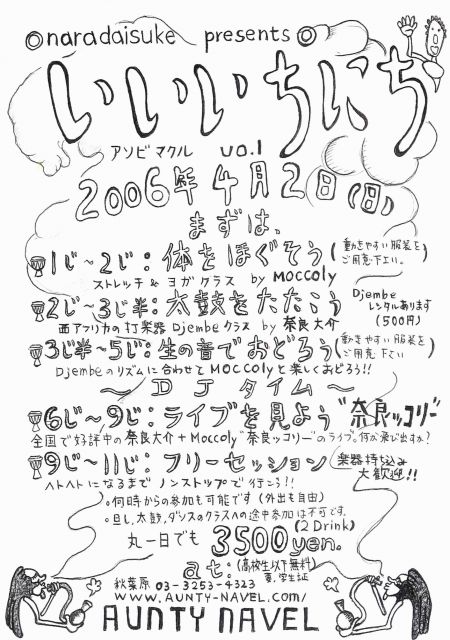 naradaisuke presents
いいいちにち
アソビマクル vo.1
2006年4月2日(日)
まずは、
1じ~2じ:体をほぐそう(動きやすい服装をご用意下さい。)
ストレッチ&ヨガクラス by MOCCOLY
2じ~3じ半:太鼓をたたこう Djembeレンタルあります(500円)
西アフリカの打楽器 Djembeクラス by 奈良大介
3じ半~5じ:生の音でおどろう(動きやすい服装をご用意下さい)
Djembeのリズムに合わせてMOCCOLYと楽しくおどろう!!
~DJタイム~
6じ~9じ:ライブを見よう"奈良ッコリー"
全国で好評中の奈良大介+Moccoly"奈良ッコリー"のライブ。何が飛び出すか?
9じ~11じ:フリーセッション 楽器持ち込み大歓迎!!
ヘトヘトになるまでノンストップで行こう!!
。何時からの参加も可能です(外出も自由)
。但し、太鼓、ダンスのクラスへの途中参加は不可です。
丸一日でも 3500yen. (2 Drink)
at: (高校生以下無料) 要、学生証
秋葉原 03-3253-4323
WWW.AUNTY-NAVEL.com/
AUNTY NAVEL